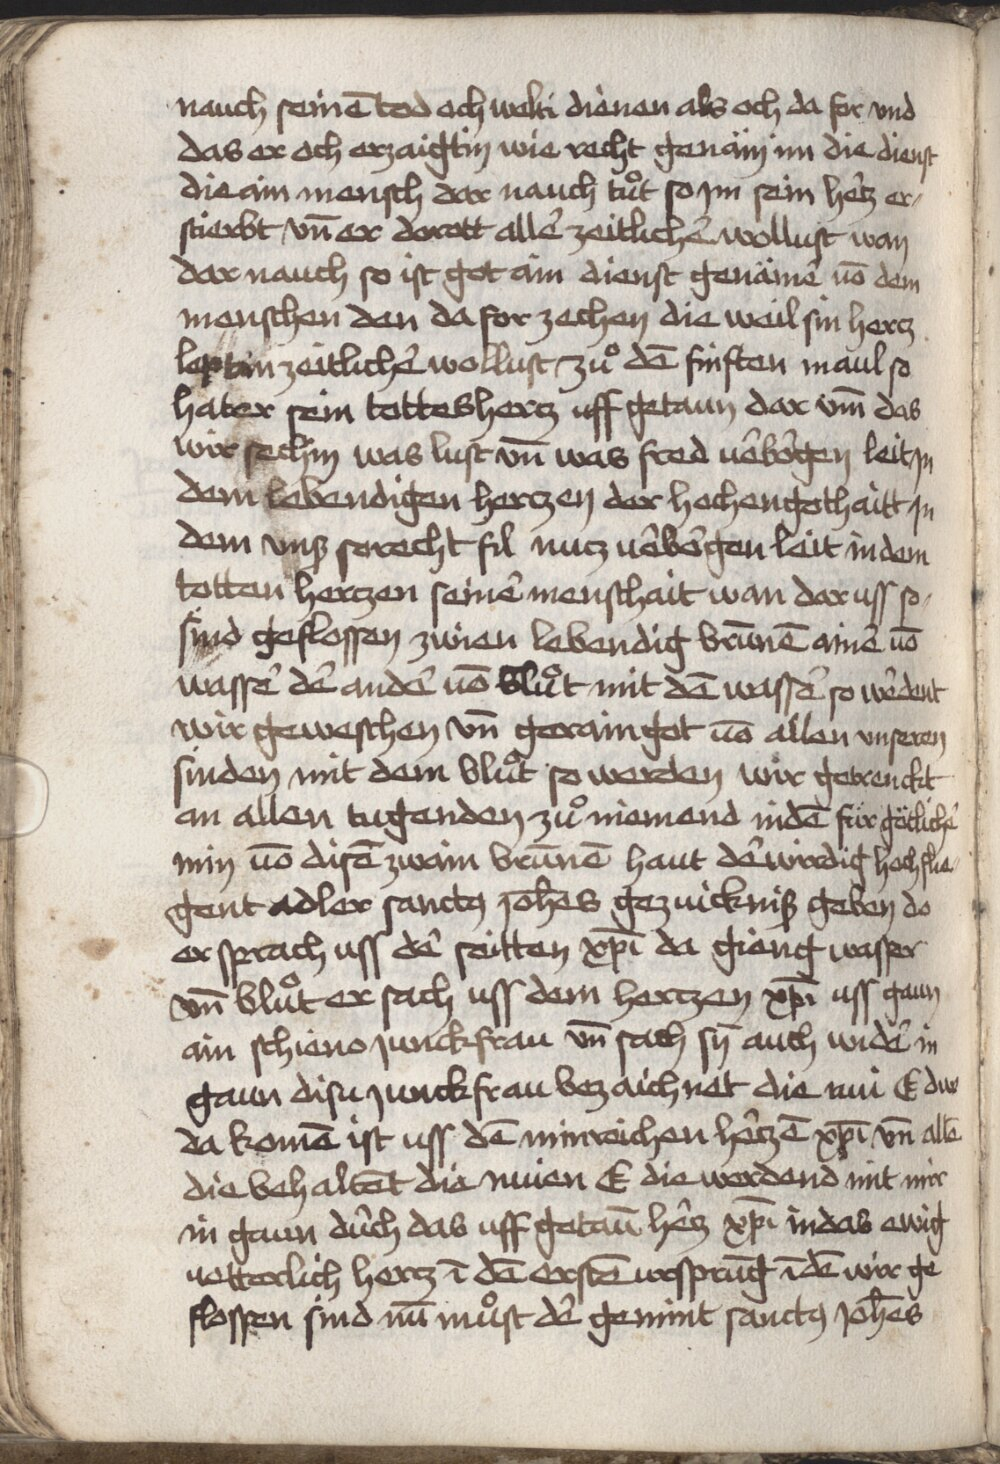 nauch seinē tod och welti dienen als och da for vnd
das er och erzaigtin wie recht genäm im die dienst
die ain mensch dar nauch tuͦt so jm sein h'tz er-
stierbt vn̄ er dorott all' zeitlich' wollust wan
dar nauch so ist got ain dienst genäm' uō dem
menschen den da for zechen die weil sin hertz
lept in zeitlich' wollust zuͦ dē finften maul so
hat er sein tottes hertz uff getaun dar vm̄ das
wir sechin was lust vn̄ was fred u'b'gen leit jn
dem lebendigen hertzen der hochen gothaitt jn
dem vnß so recht fil nutz u'b'gen leit in dem
totten hertzen sein' menschait wan dar uss so-
sind geflossen zwien lebendig brūnē ain' uō
wass' d' and' uō bluͦt mit dē wass' so w'dent
wir geweschen vn̄ gerainget uō allen vnseren
sinden mit dem bluͦt so werden wir getrenckt
an allen tugenden zuͦ niemend in dē für götlich'
min uō disē zwain brūnē haut d' wirdig hoch flie-
gent adler sanctꝯ joh̄es gezuickniß geben do
er sprach uss d' seitten xp̄i da gieng wasser
vn̄ bluͦt er sach uss dem hertzen xp̄i uss gaun
ain schieno junckfrau vn̄ sach sȳ auch wid' in
gaun disu junckfrau bezaichnet die nui E die
da komē ist uss dē minreichen h'tzē xp̄i vn̄ allē
die behaltēt die nuien E die werdend mit mir
in gaun d'ch das uff getaū h'tz xp̄i in das ewig
uetterlich hertz ī dē erstē ursprūg ī dē wir ge
flossen sind nū muͦst d' gemint sanctꝯ joh̄es